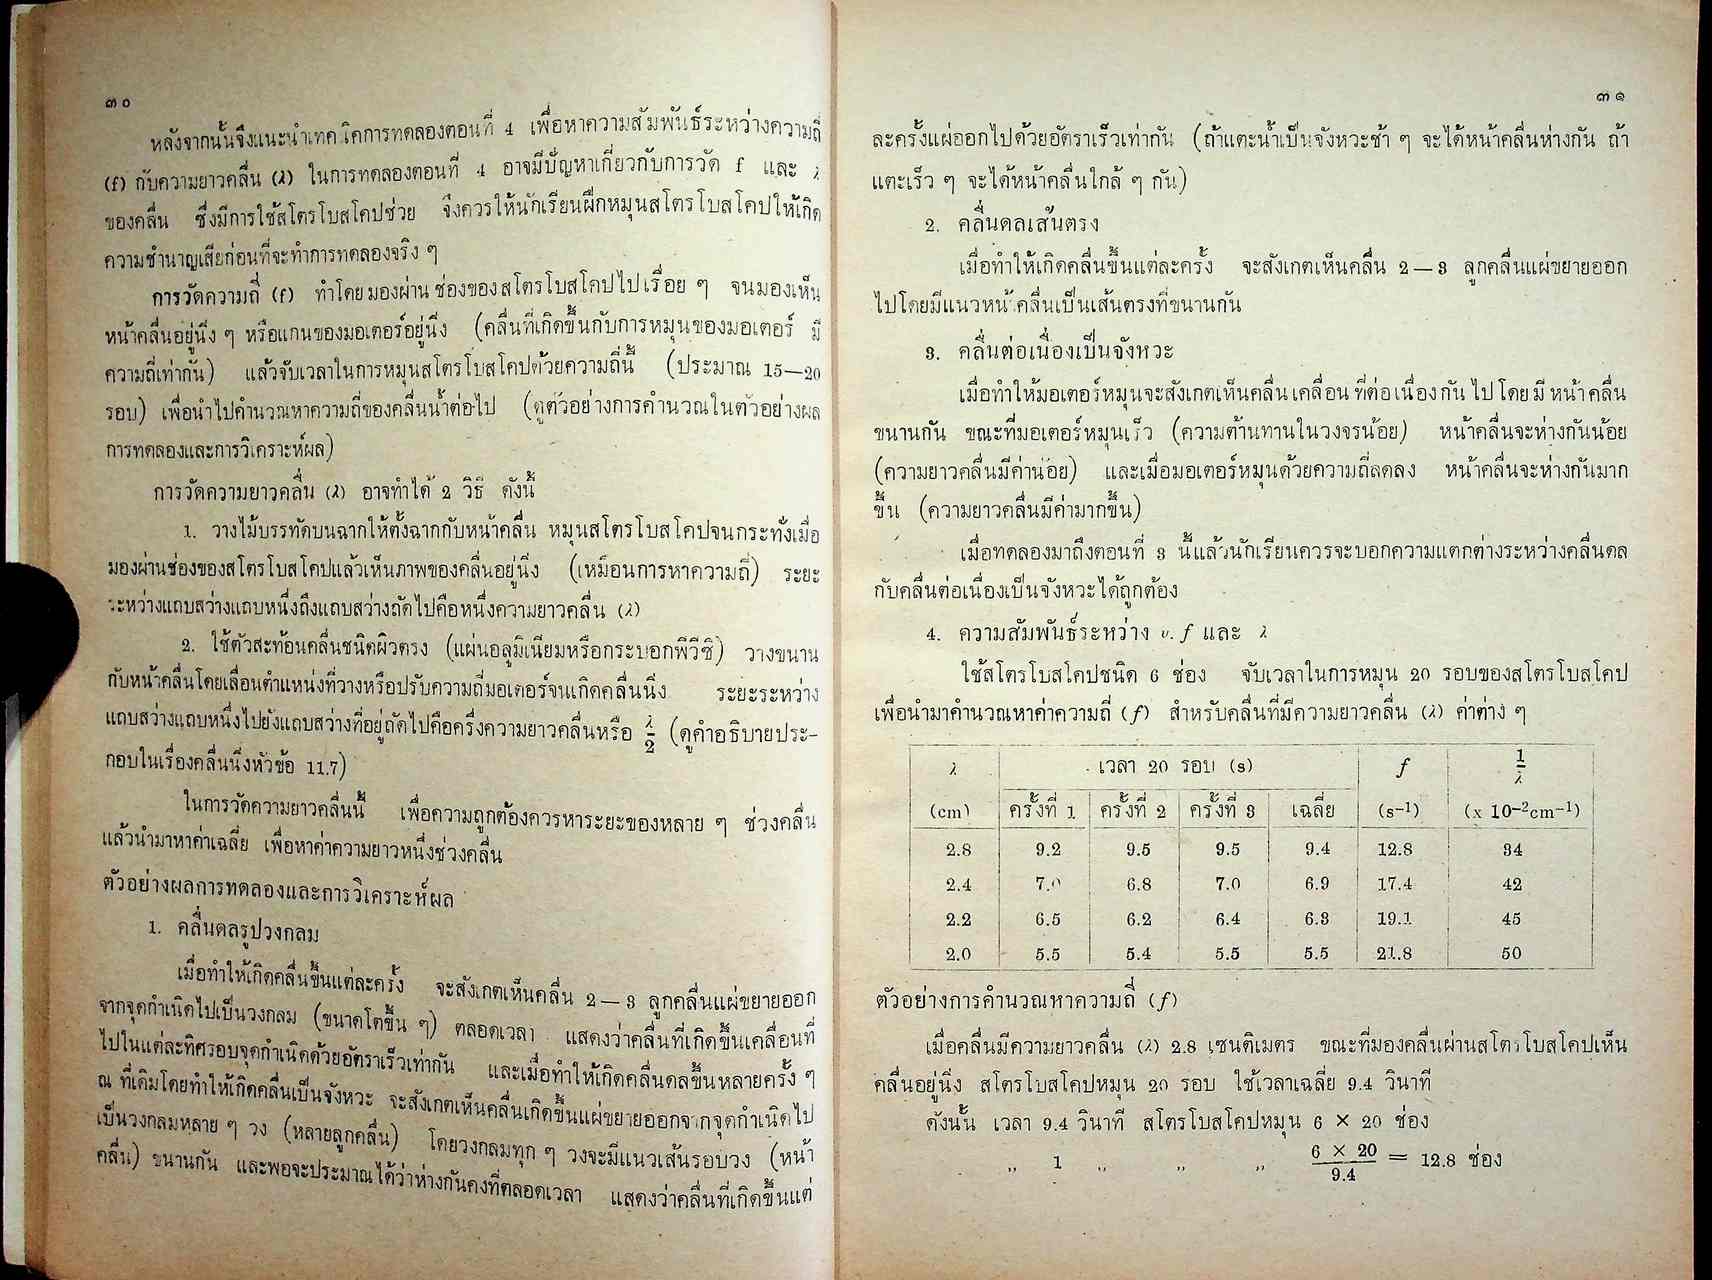 ๓๐
หลังจากนั้นจึงแนะนำเทคนิคการทดลองตอนที่ 4 เพื่อหาความสัมพันธ์ระหว่างความถี่
(f) กับความยาวคลื่น (λ) ในการทดลองตอนที่ 4 อาจมีปัญหาเกี่ยวกับการวัด f และ λ
ของคลื่น ซึ่งมีการใช้สโตรโบสโคปช่วย จึงควรให้นักเรียนฝึกหมุนสโตรโบสโคปให้เกิด
ความชำนาญเสียก่อนที่จะทำการทดลองจริง ๆ
การวัดความถี่ (f) ทำโดยมองผ่านช่องของสโตรโบสโคปไปเรื่อย ๆ จนมองเห็น
หน้าคลื่นอยู่นิ่ง ๆ หรือแกนของมอเตอร์อยู่นิ่ง (คลื่นที่เกิดขึ้นกับการหมุนของมอเตอร์ มี
ความถี่เท่ากัน) แล้วจับเวลาในการหมุนสโตรโบสโคปด้วยความถี่นี้ (ประมาณ 15—20
รอบ) เพื่อนำไปคำนวณหาความถี่ของคลื่นน้ำต่อไป (ดูตัวอย่างการคำนวณในตัวอย่างผล
การทดลองและการวิเคราะห์ผล)
การวัดความยาวคลื่น (λ) อาจทำได้ 2 วิธี ดังนี้
1. วางไม้บรรทัดบนฉากให้ตั้งฉากกับหน้าคลื่น หมุนสโตรโบสโคปจนกระทั่งเมื่อ
มองผ่านช่องของสโตรโบสโคปแล้วเห็นภาพของคลื่นอยู่นิ่ง (เหมือนการหาความถี่) ระยะ
ระหว่างแถบสว่างแถบหนึ่งถึงแถบสว่างถัดไปคือหนึ่งความยาวคลื่น (λ)
2. ใช้ตัวสะท้อนคลื่นชนิดผิวตรง (แผ่นอลูมิเนียมหรือกระบอกพีวีซี) วางขนาน
กับหน้าคลื่นโดยเลื่อนตำแหน่งที่วางหรือปรับความถี่มอเตอร์จนเกิดคลื่นนิ่ง ระยะระหว่าง
แถบสว่างแถบหนึ่งไปยังแถบสว่างที่อยู่ถัดไปคือครึ่งความยาวคลื่นหรือ λ/2 (ดูคำอธิบายประ-
กอบในเรื่องคลื่นนิ่งหัวข้อ 11.7)
ในการวัดความยาวคลื่นนี้ เพื่อความถูกต้องควรหาระยะของหลาย ๆ ช่วงคลื่น
แล้วนำมาหาค่าเฉลี่ย เพื่อหาค่าความยาวหนึ่งช่วงคลื่น
ตัวอย่างผลการทดลองและการวิเคราะห์ผล
1. คลื่นดลรูปวงกลม
เมื่อทำให้เกิดคลื่นขึ้นแต่ละครั้ง จะสังเกตเห็นคลื่น 2—3 ลูกคลื่นแผ่ขยายออก
จากจุดกำเนิดไปเป็นวงกลม (ขนาดโตขึ้น ๆ) ตลอดเวลา แสดงว่าคลื่นที่เกิดขึ้นเคลื่อนที่
ไปในแต่ละทิศรอบจุดกำเนิดด้วยอัตราเร็วเท่ากัน และเมื่อทำให้เกิดคลื่นดลขึ้นหลายครั้ง ๆ
ณ ที่เดิมโดยทำให้เกิดคลื่นเป็นจังหวะ จะสังเกตเห็นคลื่นเกิดขึ้นแผ่ขยายออกจากจุดกำเนิดไป
เป็นวงกลมหลาย ๆ วง (หลายลูกคลื่น) โดยวงกลมทุก ๆ วงจะมีแนวเส้นรอบวง (หน้า
คลื่น) ขนานกัน และพอจะประมาณได้ว่าห่างกันคงที่ตลอดเวลา แสดงว่าคลื่นที่เกิดขึ้นแต่
๓๑
ละครั้งแผ่ออกไปด้วยอัตราเร็วเท่ากัน (ถ้าแตะน้ำเป็นจังหวะช้า ๆ จะได้หน้าคลื่นห่างกัน ถ้า
แตะเร็ว ๆ จะได้หน้าคลื่นใกล้ ๆ กัน)
2. คลื่นดลเส้นตรง
เมื่อทำให้เกิดคลื่นขึ้นแต่ละครั้ง จะสังเกตเห็นคลื่น 2—3 ลูกคลื่นแผ่ขยายออก
ไปโดยมีแนวหน้าคลื่นเป็นเส้นตรงที่ขนานกัน
3. คลื่นต่อเนื่องเป็นจังหวะ
เมื่อทำให้มอเตอร์หมุนจะสังเกตเห็นคลื่นเคลื่อนที่ต่อเนื่องกันไปโดยมีหน้าคลื่น
ขนานกัน ขณะที่มอเตอร์หมุนเร็ว (ความต้านทานในวงจรน้อย) หน้าคลื่นจะห่างกันน้อย
(ความยาวคลื่นมีค่าน้อย) และเมื่อมอเตอร์หมุนด้วยความถี่ลดลง หน้าคลื่นจะห่างกันมาก
ขึ้น (ความยาวคลื่นมีค่ามากขึ้น)
เมื่อทดลองมาถึงตอนที่ 3 นี้แล้วนักเรียนควรจะบอกความแตกต่างระหว่างคลื่นดล
กับคลื่นต่อเนื่องเป็นจังหวะได้ถูกต้อง
4. ความสัมพันธ์ระหว่าง v. f และ λ
ใช้สโตรโบสโคปชนิด 6 ช่อง จับเวลาในการหมุน 20 รอบของสโตรโบสโคป
เพื่อนำมาคำนวณหาค่าความถี่ (f) สำหรับคลื่นที่มีความยาวคลื่น (λ) ค่าต่าง ๆ
λ เวลา 20 รอบ (s) f 1/λ
(cm) ครั้งที่ 1 ครั้งที่ 2 ครั้งที่ 3 เฉลี่ย (s⁻¹) (x 10⁻²cm⁻¹)
2.8 9.2 9.5 9.5 9.4 12.8 34
2.4 7.0 6.8 7.0 6.9 17.4 42
2.2 6.5 6.2 6.4 6.3 19.1 45
2.0 5.5 5.4 5.5 5.5 21.8 50
ตัวอย่างการคำนวณหาความถี่ (f)
เมื่อคลื่นมีความยาวคลื่น (λ) 2.8 เซนติเมตร ขณะที่มองคลื่นผ่านสโตรโบสโคปเห็น
คลื่นอยู่นิ่ง สโตรโบสโคปหมุน 20 รอบ ใช้เวลาเฉลี่ย 9.4 วินาที
ดังนั้น เวลา 9.4 วินาที สโตรโบสโคปหมุน 6 × 20 ช่อง
,, 1 ,, ,, ,, 6 × 20/9.4 = 12.8 ช่อง